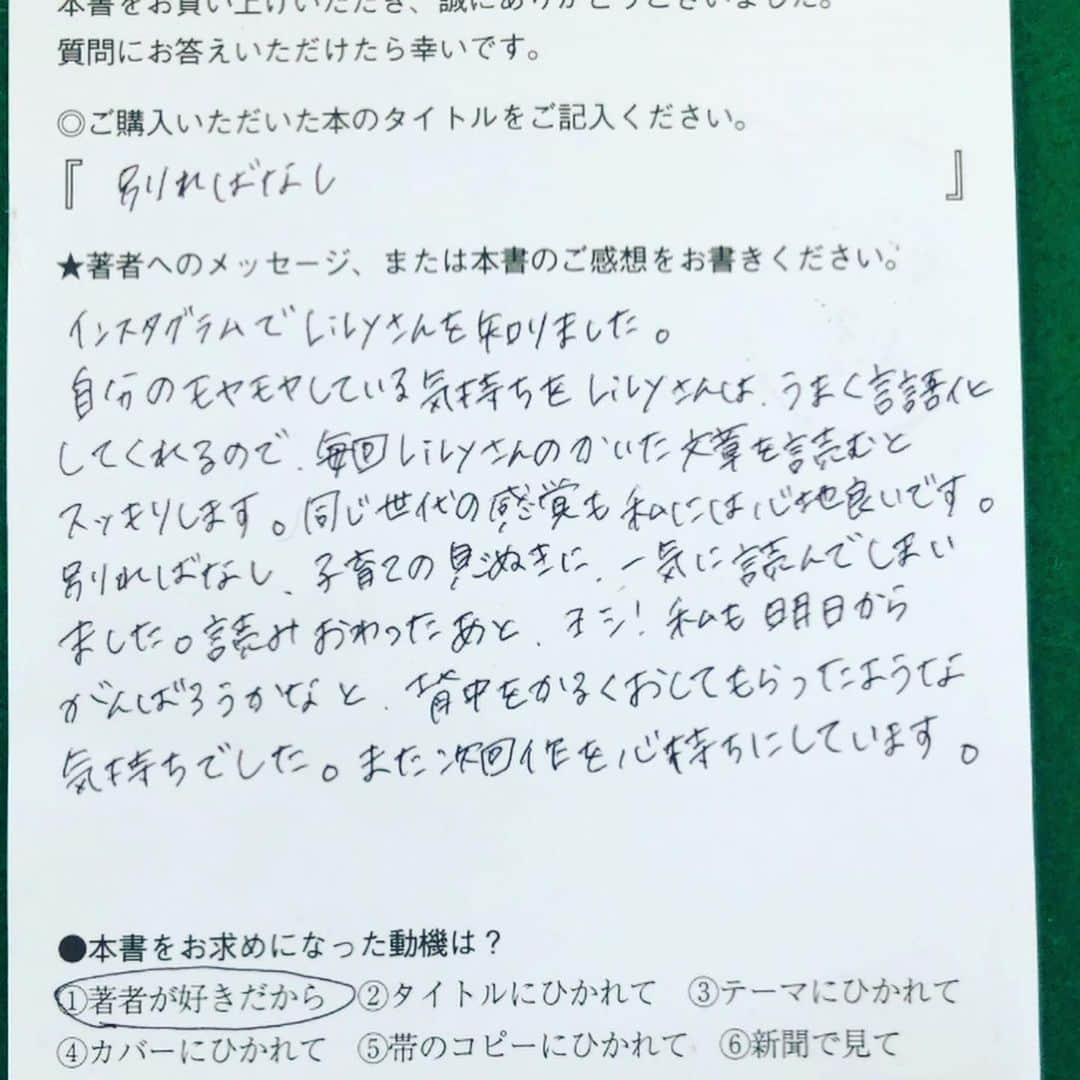 本書をお買い上げいただき、誠にありがとうございました。
質問にお答えいただけたら幸いです。
◎ご購入いただいた本のタイトルをご記入ください。
『 別ればなし 』
★著者へのメッセージ、または本書のご感想をお書きください。
インスタグラムでLiLyさんを知りました。
自分のモヤモヤしている気持ちをLiLyさんは、うまく言語化
してくれるので、毎回LiLyさんのかいた文章を読むと
スッキリします。同じ世代の感覚も私には心地良いです。
別ればなし、子育ての息ぬきに、一気に読んでしまい
ました。読みおわったあと、ヨシ!私も明日から
がんばろうかなと、背中をかるくおしてもらったような
気持ちでした。また次回作を心待ちにしています。
●本書をお求めになった動機は？
①著者が好きだから ②タイトルにひかれて ③テーマにひかれて
④カバーにひかれて ⑤帯のコピーにひかれて ⑥新聞で見て